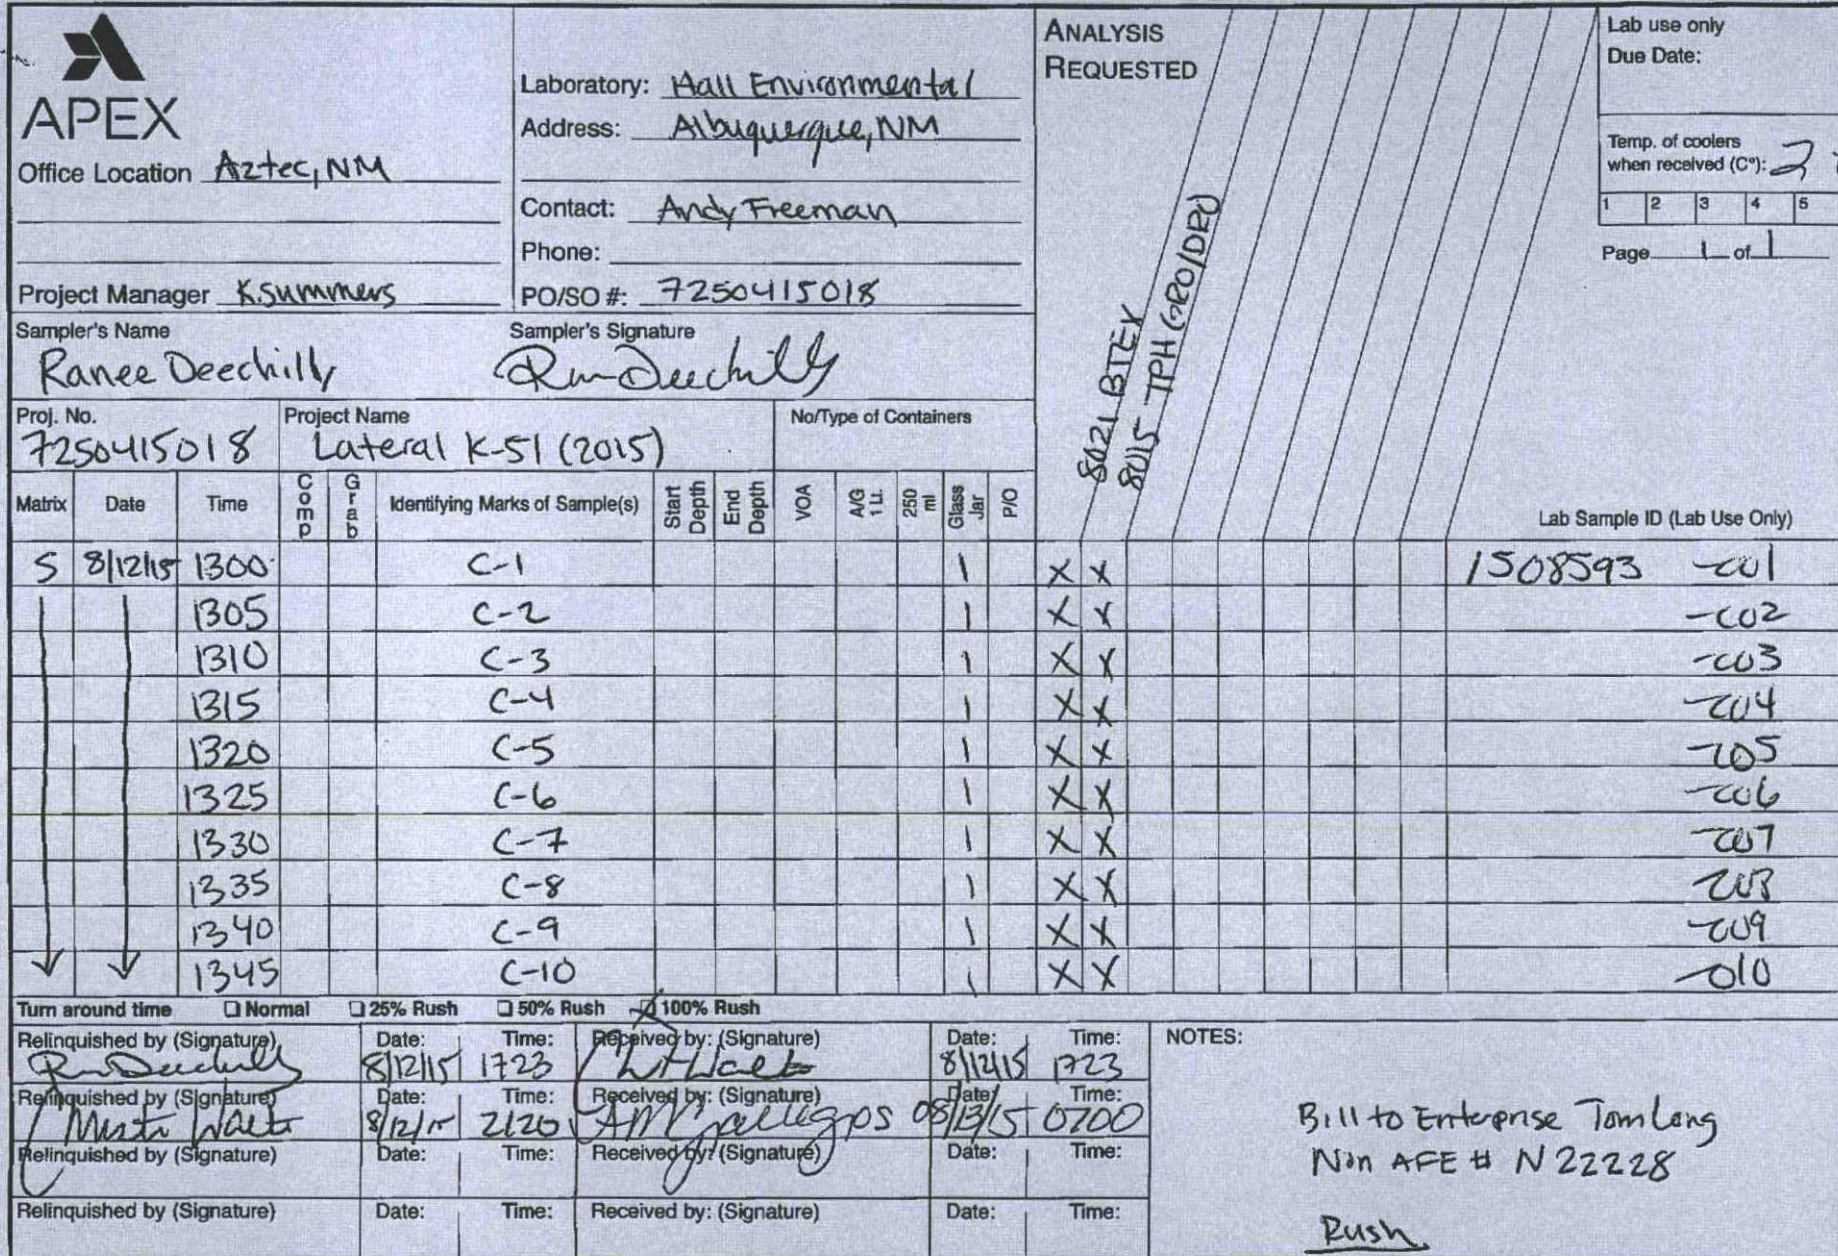 APEX
Office Location Aztec, NM
Project Manager K. Summers
Laboratory: Hall Environmental
Address: Albuquerque, NM
Contact: Andy Freeman
Phone:
PO/SO #: 7250415018
ANALYSIS
REQUESTED
8021 BTEX
8015 TPH (GRO/DRO)
Lab use only
Due Date:
Temp. of coolers
when received (C°): 2
1 2 3 4 5
Page 1 of 1
Sampler's Name
Ranee Deechilly
Sampler's Signature
Proj. No.
7250415018
Project Name
Lateral K-51 (2015)
No/Type of Containers
Matrix Date Time Comp Grab Identifying Marks of Sample(s) Start Depth End Depth VOA A/G 1 Lt. 250 ml Glass Jar P/O Lab Sample ID (Lab Use Only)
S 8/12/15 1300 C-1 1 X X 1508593 -001
1305 C-2 1 X X -002
1310 C-3 1 X X -003
1315 C-4 1 X X -004
1320 C-5 1 X X -005
1325 C-6 1 X X -006
1330 C-7 1 X X -007
1335 C-8 1 X X -008
1340 C-9 1 X X -009
1345 C-10 1 X X -010
Turn around time Normal 25% Rush 50% Rush 100% Rush
Relinquished by (Signature) Date: 8/12/15 Time: 1723 Received by: (Signature) Date: 8/12/15 Time: 1723
Relinquished by (Signature) Date: 8/12/15 Time: 2120 Received by: (Signature) Date: 08/13/15 Time: 0700
Relinquished by (Signature) Date: Time: Received by: (Signature) Date: Time:
Relinquished by (Signature) Date: Time: Received by: (Signature) Date: Time:
NOTES:
Bill to Enterprise Tom Long
Non AFE # N22228
Rush